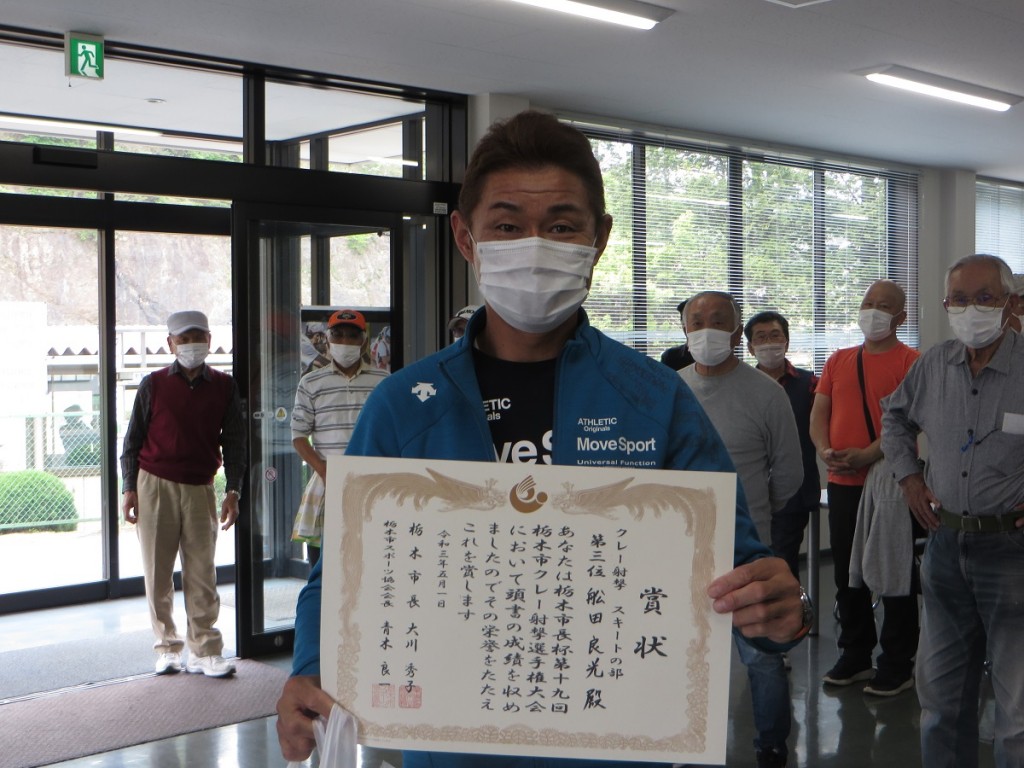 ATHLETIC
Originals
Move Sport
Universal Function
ATHLETIC
nals
ve S
賞状
クレー射撃 スキートの部
第三位 舩田良光 殿
あなたは栃木市長杯第十九回
栃木市クレー射撃選手権大会
において頭書の成績を収め
ましたのでその栄誉をたたえ
これを賞します
令和三年五月一日
栃木市長 大川秀子
栃木市スポーツ協会会長 青木良一